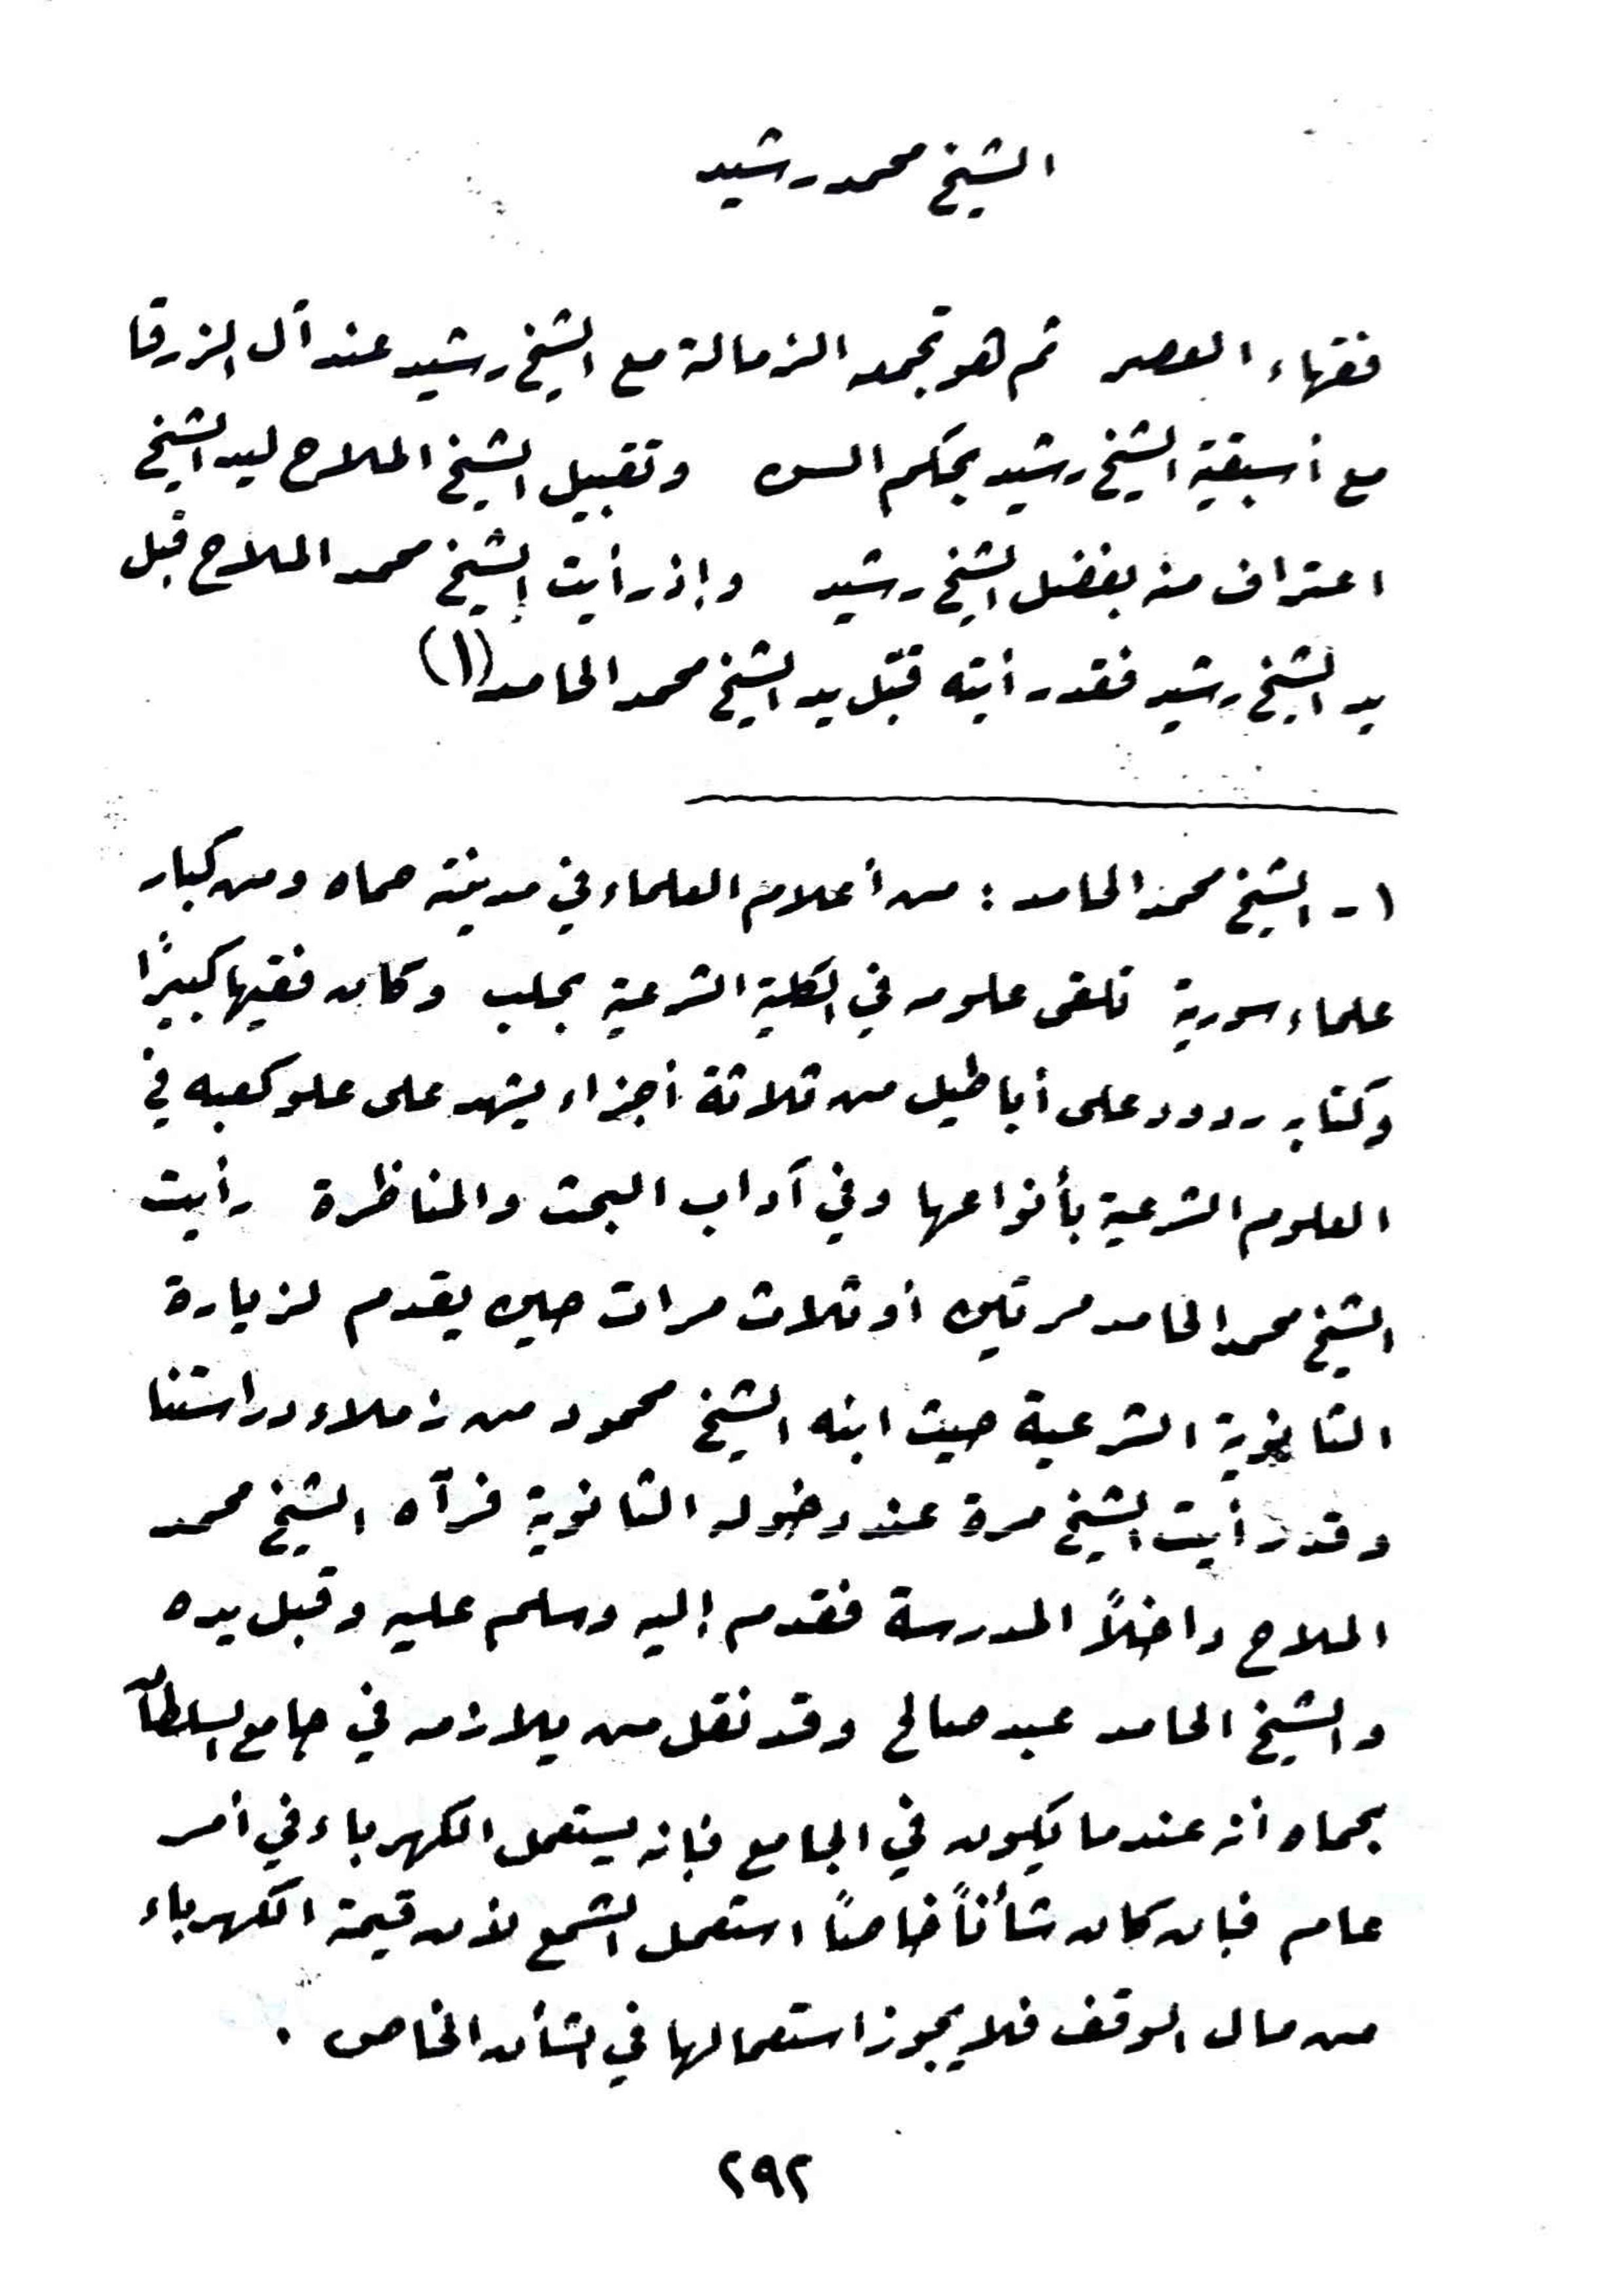 الشيخ محمد رشيد
فقهاء العصر ثم هو تجمعه الزمالة مع الشيخ رشيد عند آل الزرقا
مع أسبقية الشيخ رشيد بحكم السن وتقبيل الشيخ الملاح ليد الشيخ
اعتراف منه بفضل الشيخ رشيد وإذ رأيت الشيخ محمد الملاح قبل
يد الشيخ رشيد فقد رأيته قبّل يد الشيخ محمد الحامد (١)
١- الشيخ محمد الحامد : من أعلام العلماء في مدينة حماه ومن كبار
علماء سورية تلقى علومه في الكلية الشرعية بحلب وكان فقيها كبيرًا
وكتابه ردود على أباطيل من ثلاثة أجزاء يشهد على علو كعبه في
العلوم الشرعية بأنواعها وفي آداب البحث والمناظرة رأيت
الشيخ محمد الحامد مرتين أو ثلاث مرات حين يقدم لزيارة
الثانوية الشرعية حيث ابنه الشيخ محمود من زملاء دراستنا
وقد رأيت الشيخ مرة عند دخوله الثانوية فرآه الشيخ محمد
الملاح داخلاً المدرسة فقدم إليه وسلم عليه وقبل يده
والشيخ الحامد عبد صالح وقد نقل من يلازمه في جامع السلطان
بحماه أنه عندما يكون في الجامع فإنه يستعمل الكهرباء في أمر
عام فإن كان شأناً خاصاً استعمل الشمع لأن قيمة الكهرباء
من مال الوقف فلا يجوز استعمالها في الشأن الخاص .
٢٩٢